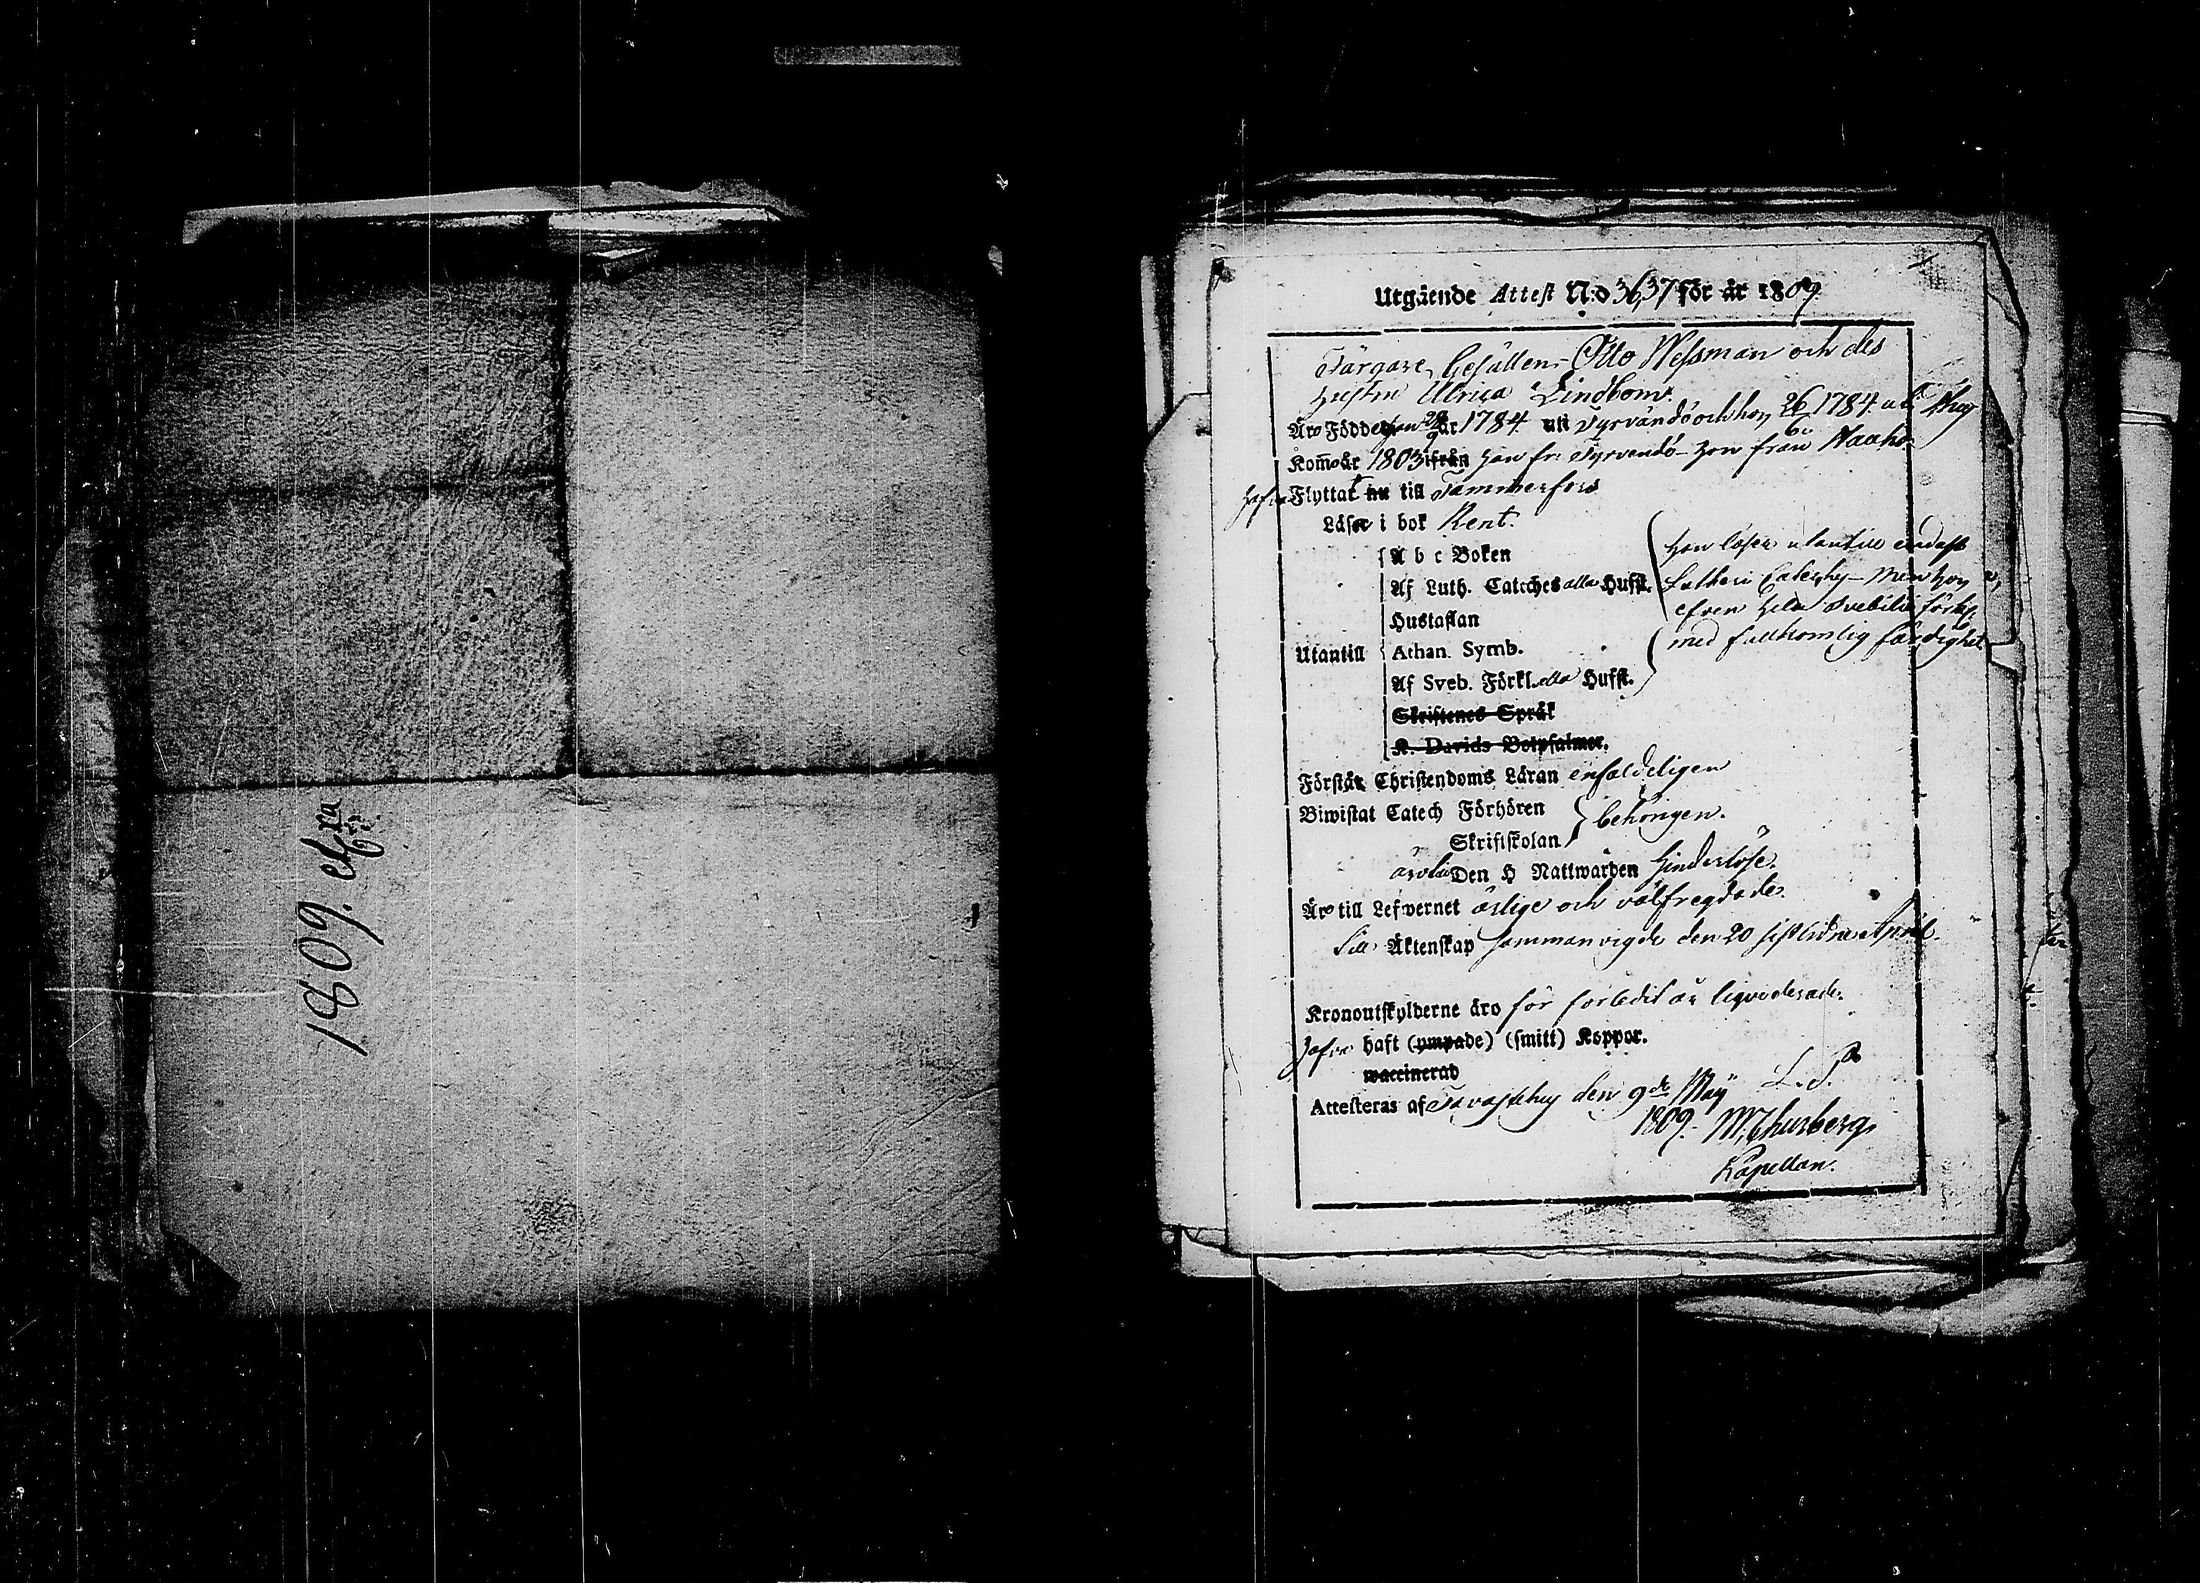 1809.
Utgående Attest N:o 36, 37 för år 1809
Färgare Gesällen Otto Wessman och des
hustru Ulrica Lindbom.
Äro Födde han år 1784 uti Tyrvändö och hon 26/6 1784 uti
Kom̄o år 1803 ifrån han fr. Tyrvendö hon från
Hafva Flyttat nu till Tammerfors
Läsa i bok Rent.
A b c Boken
Af Luth. Cateches alla Hufst.
Hustaflan
Utantill
Athan. Symb.
Af Sveb. Förkl. alla Hufst.
Skriftenes Språk
K. Davids Botpsalmer.
han läser utantill endast
Lutheri Catechs – men hon
efven hela Svebilii förkl.
med fullkomlig färdighet
Förstår Christendoms Läran enfaldeligen
Biwistat Catech Förhören
Skriftskolan
behörigen.
Den H Nattwarden hinderlöse.
Äro till Lefwernet ärlige och välfregdade.
Till Äktenskap sammanvigde den 20 sistledne April.
Kronoutskylderne äro för förledit år liqviderade.
Hafva haft (ympade) (smitt) Koppor.
waccinerad
Attesteras af Tavastehus den 9de Maij L.S.
1809. M. Thurberg
Kapellan.